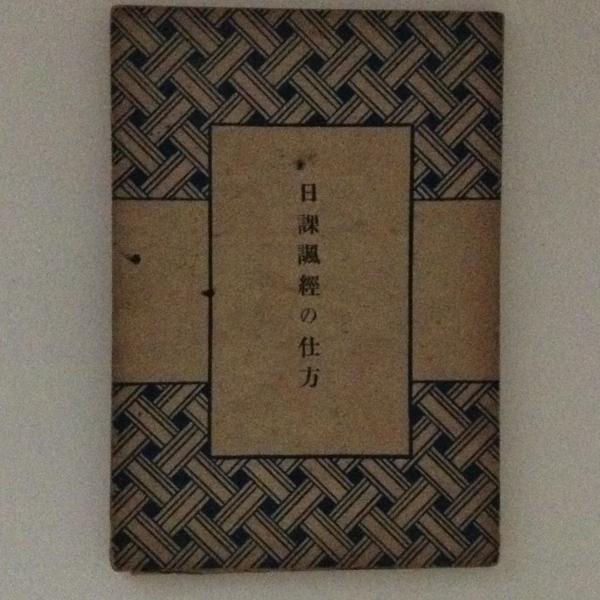 日課諷經の仕方